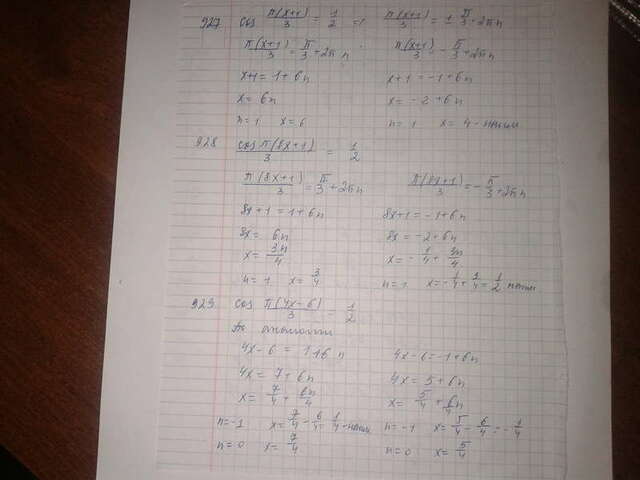 927 cos π(x+1)/3 = 1/2 => π(x+1)/3 = ± π/3 + 2πn
π(x+1)/3 = π/3 + 2πn π(x+1)/3 = - π/3 + 2πn
x+1 = 1 + 6n x+1 = -1 + 6n
x = 6n x = -2 + 6n
n = 1 x = 6 n = 1 x = 4 - наим
928 cos π(8x+1)/3 = 1/2
π(8x+1)/3 = π/3 + 2πn π(8x+1)/3 = - π/3 + 2πn
8x+1 = 1 + 6n 8x+1 = -1 + 6n
8x = 6n 8x = -2 + 6n
x = 3n/4 x = - 1/4 + 3n/4
n = 1 x = 3/4 n = 1 x = - 1/4 + 3/4 = 1/2 наим
929 cos π(4x-6)/3 = 1/2
По аналогии
4x-6 = 1+6n 4x-6 = -1+6n
4x = 7+6n 4x = 5+6n
x = 7/4 + 6n/4 x = 5/4 + 6n/4
n = -1 x = 7/4 - 6/4 = 1/4 - наим n = -1 x = 5/4 - 6/4 = - 1/4
n = 0 x = 7/4 n = 0 x = 5/4